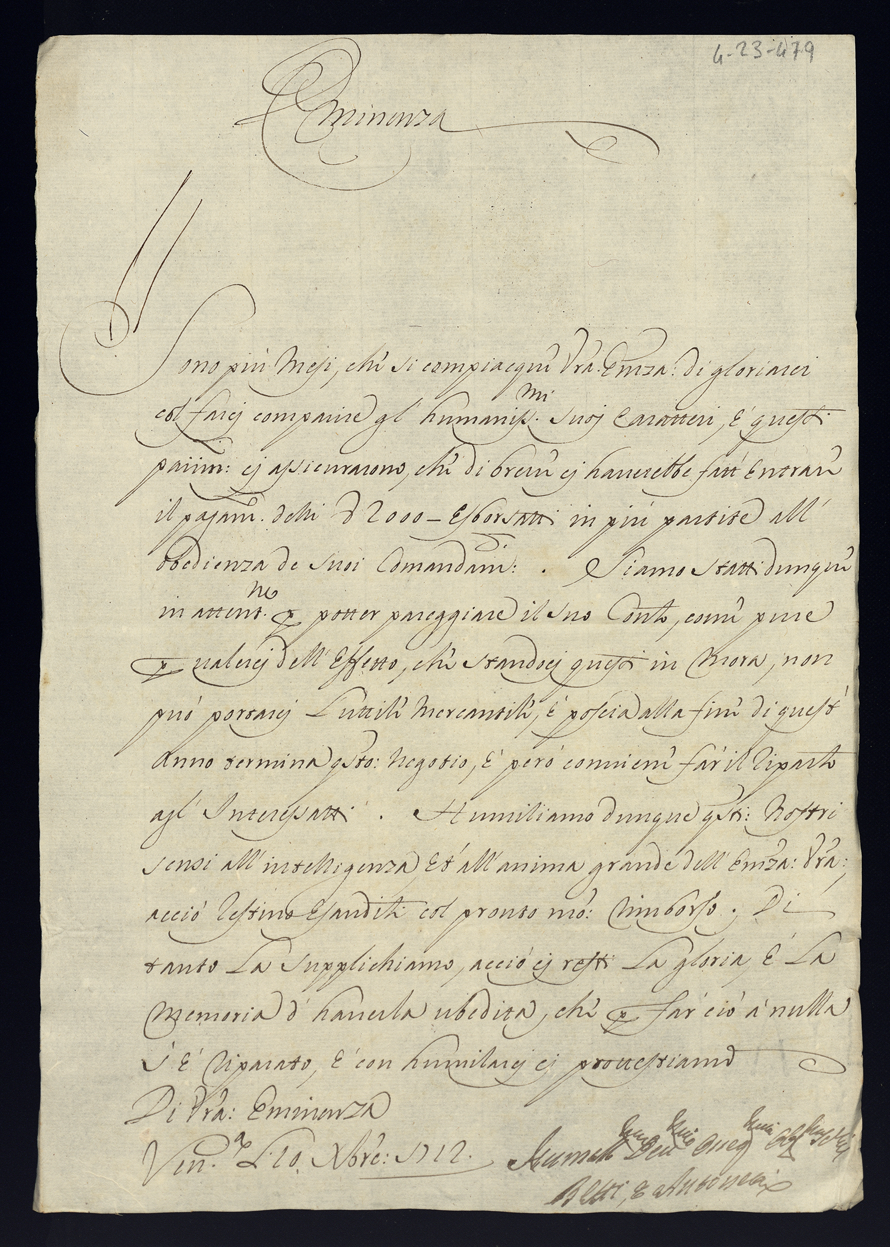 4-23-479
Eminenza
Sono più Mesi, che si compiacque Vra: Emza: di gloriarci
col farci comparire gl' humaniss.mi suoj Caratteri, é questi
parim: cj assicurarono, che di breve cj haverebbe fatt' Entrare
il pagam. delli d 2000 – Esborsatti in più partite all'
obedienza de suoi Comandam: . Siamo statti dunque
in attent.ne p potter pareggiare il suo Conto, come pure
p valercj dell' Effetto, che standocj questi in Mora, non
può portarcj L'uttile Mercantile, é poscia alla fine di quest'
Anno termina qsto: Negotio, é peró conviene far' il riparto
agl' Interessatti . Humiliamo dunque qsti: Nostri
sensi all' intelligenza, Et' all' anima grande dell' Emza: Vra:,
acció restino Esauditi col pronto nro: rimborso. Di
tanto La Supplichiamo, acció cj resti La gloria, é La
Memoria d' haverla ubedita, che p far' ció a nulla
s' é riparato, é con humilarcj cj protestiamo
Di Vra: Eminenza
Ven.a Li 10. Nbre: 1712.
Betti, é Antonelli